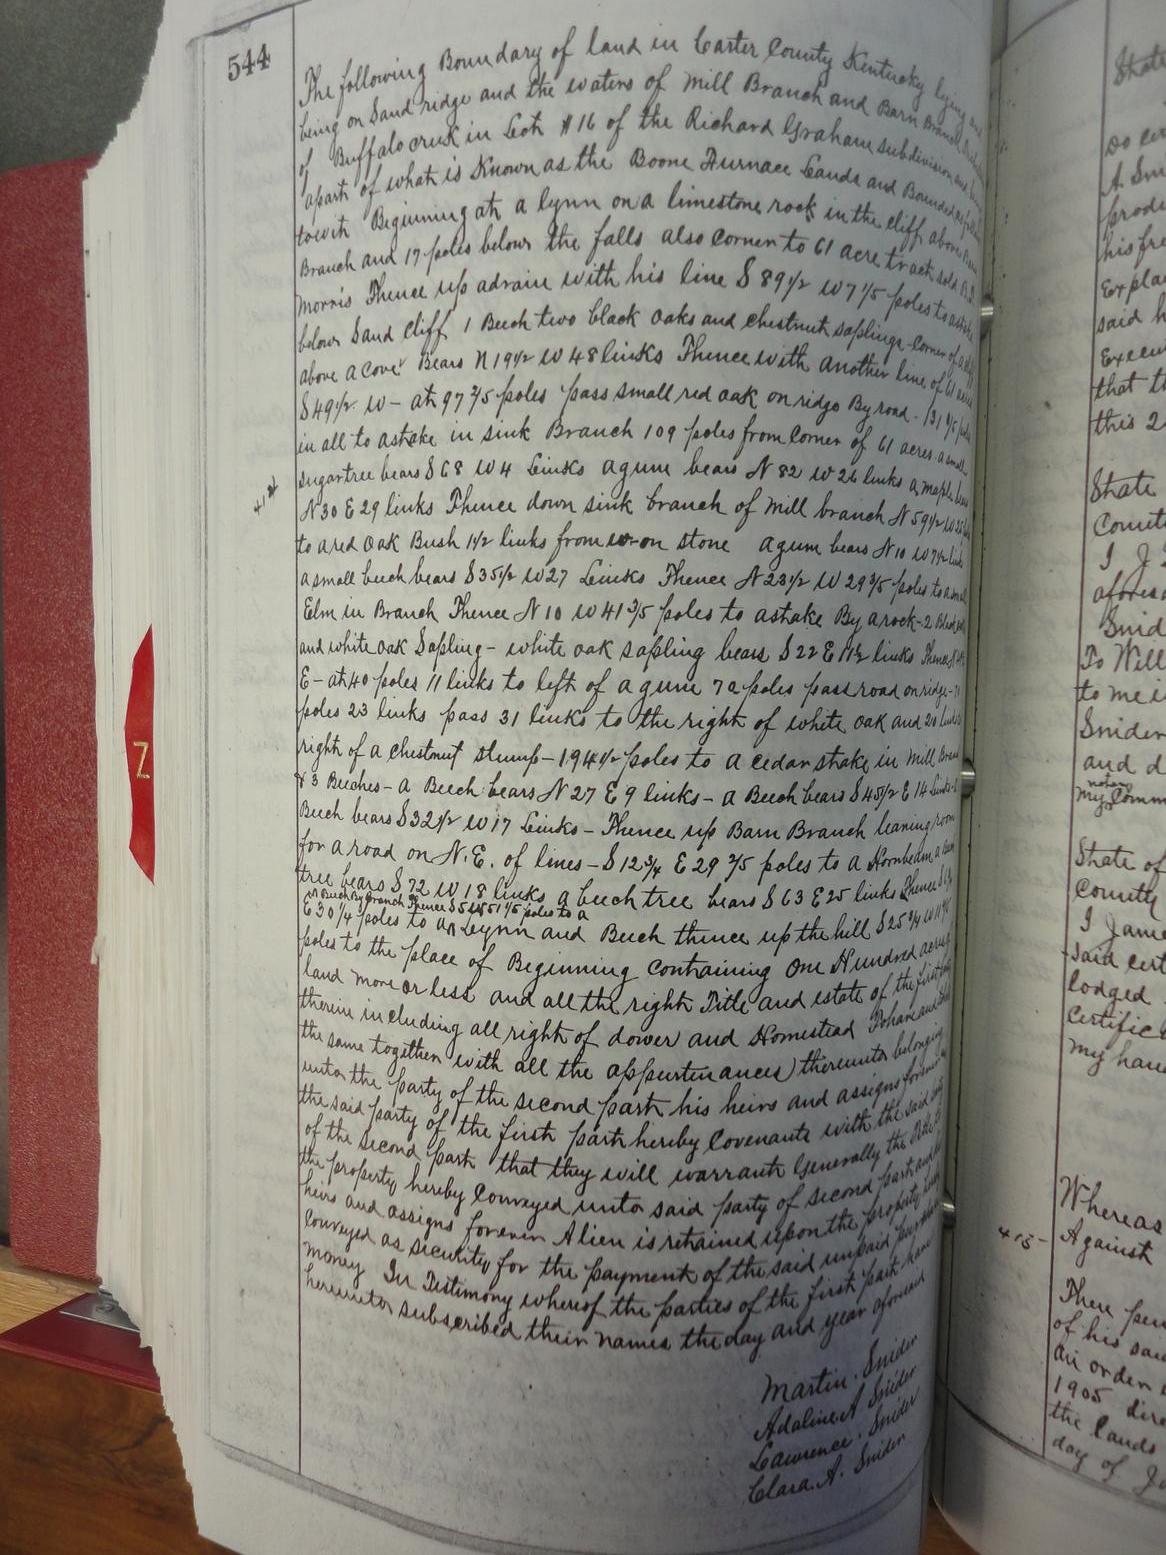 544
The following Boundary of land in Carter County Kentucky lying and
being on Sand ridge and the waters of Mill Branch and Barn Branch
of Buffalo creek in Lot #16 of the Richard Graham subdivision and
apart of what is Known as the Boone Furnace Lands and Bounded as
towit Beginning at a lynn on a limestone rock in the cliff above
Branch and 17 poles below the falls also corner to 61 acre tract sold
Morris Thence up adrain with his line S 89 1/2 W 7 1/5 poles to astake
below Sand Cliff 1 Beech two black oaks and chestnut saplings - corner of
above a cove Bears N 19 1/2 W 48 links Thence with another line of 61 acres
S 49 1/2 W - at 97 2/5 poles pass small red oak on ridge By road - 131
in all to astake in sink Branch 109 poles from corner of 61 acres a small
sugartree bears S 68 W 4 Links a gum bears N 82 W 26 links a maple bears
N 30 E 29 links Thence down sink branch of Mill branch N 59 1/2 W
to a red oak Bush 1 1/2 links from on stone a gum bears N 10 W 7 1/2 links
a small beech bears S 35 1/2 W 27 Links Thence N 23 1/2 W 29 3/5 poles to a small
Elm in Branch Thence N 10 W 41 3/5 poles to astake By a rock - 2 Black
and white oak Sapling - white oak sapling bears S 22 E 11 1/2 links Thence
E - at 40 poles 11 links to left of a gum 72 poles pass road on ridge -
poles 23 links pass 31 links to the right of white oak and 20 links
right of a chestnut stump - 194 1/2 poles to a cedar stake in Mill Branch
& 3 Beeches - a Beech bears N 27 E 9 links - a Beech bears S 45 1/2 E 14 links
Beech bears S 32 1/2 W 17 Links - Thence up Barn Branch leaving room
for a road on N.E. of lines - S 12 3/4 E 29 3/5 poles to a Hornbeam a
tree bears S 72 W 18 links a beech tree bears S 63 E 25 links Thence
Branch Thence 51 1/5 poles to a
E 30 1/4 poles to a Lynn and Beech thence up the hill S 25 3/4 W
poles to the place of Beginning containing One Hundred acres
land more or less and all the right Title and estate of the first
therein including all right of dower and Homestead Tohave and
the same together with all the appurtenances thereunto belonging
unto the party of the second part his heirs and assigns forever
the said party of the first part hereby Covenants with the said
of the second part that they will warrant Generally the title
the property hereby conveyed unto said party of second part and
heirs and assigns forever A lien is retained upon the property
Conveyed as security for the payment of the said unpaid purchase
money In Testimony whereof the parties of the first part have
hereunto subscribed their names the day and year aforesaid
Martin Snider
Adaline A Snider
Lawrence Snider
Clara A. Snider
Z
State
Do cer
A Sni
produ
his fre
Explai
said h
Execu
that th
this 2
State
County
I J
afores
Snid
To Will
to me i
Snider
and d
notary
My comm
State of
County
I Jame
Said cert
lodged
Certific
My hand
415 -
Whereas
Against
There
of his sa
an order
1905 dire
the lands
day of J